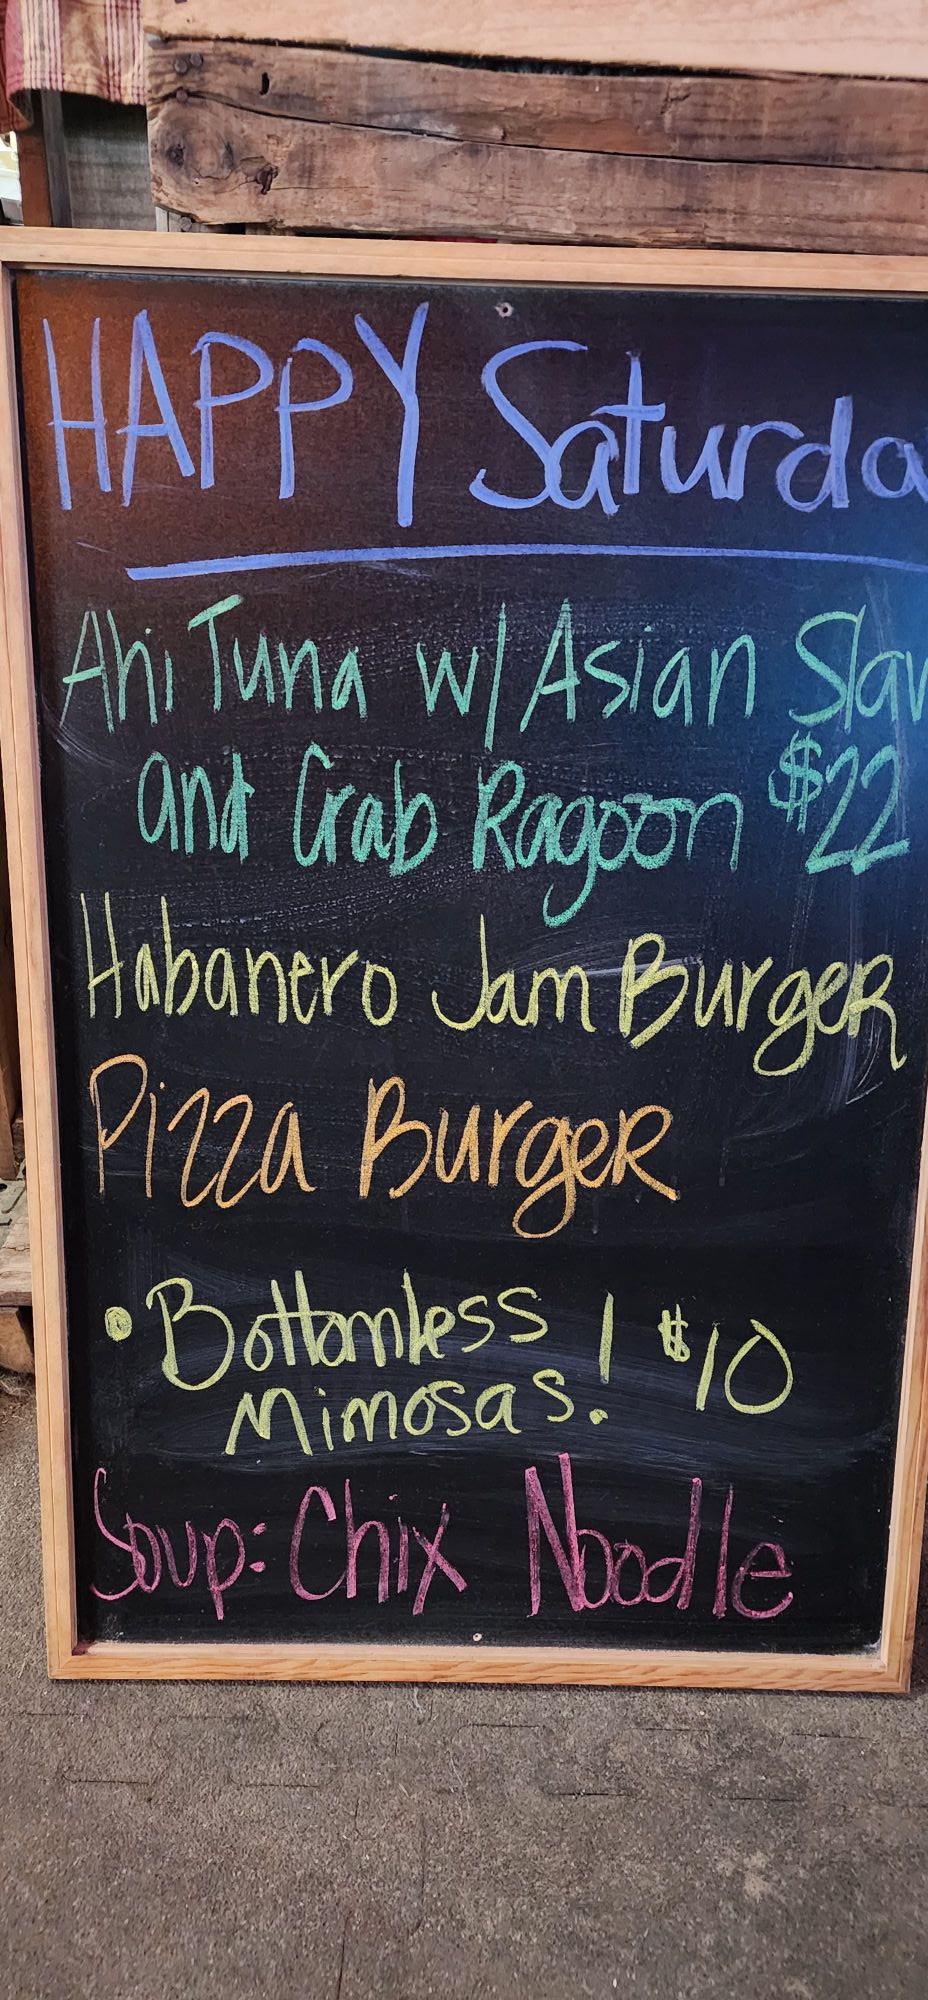 HAPPY Saturda
Ahi Tuna w/ Asian Slaw
and Crab Ragoon $22
Habanero Jam BurgeR
Pizza BurgeR
• Bottomless
Mimosas! $10
Soup: Chix Noodle